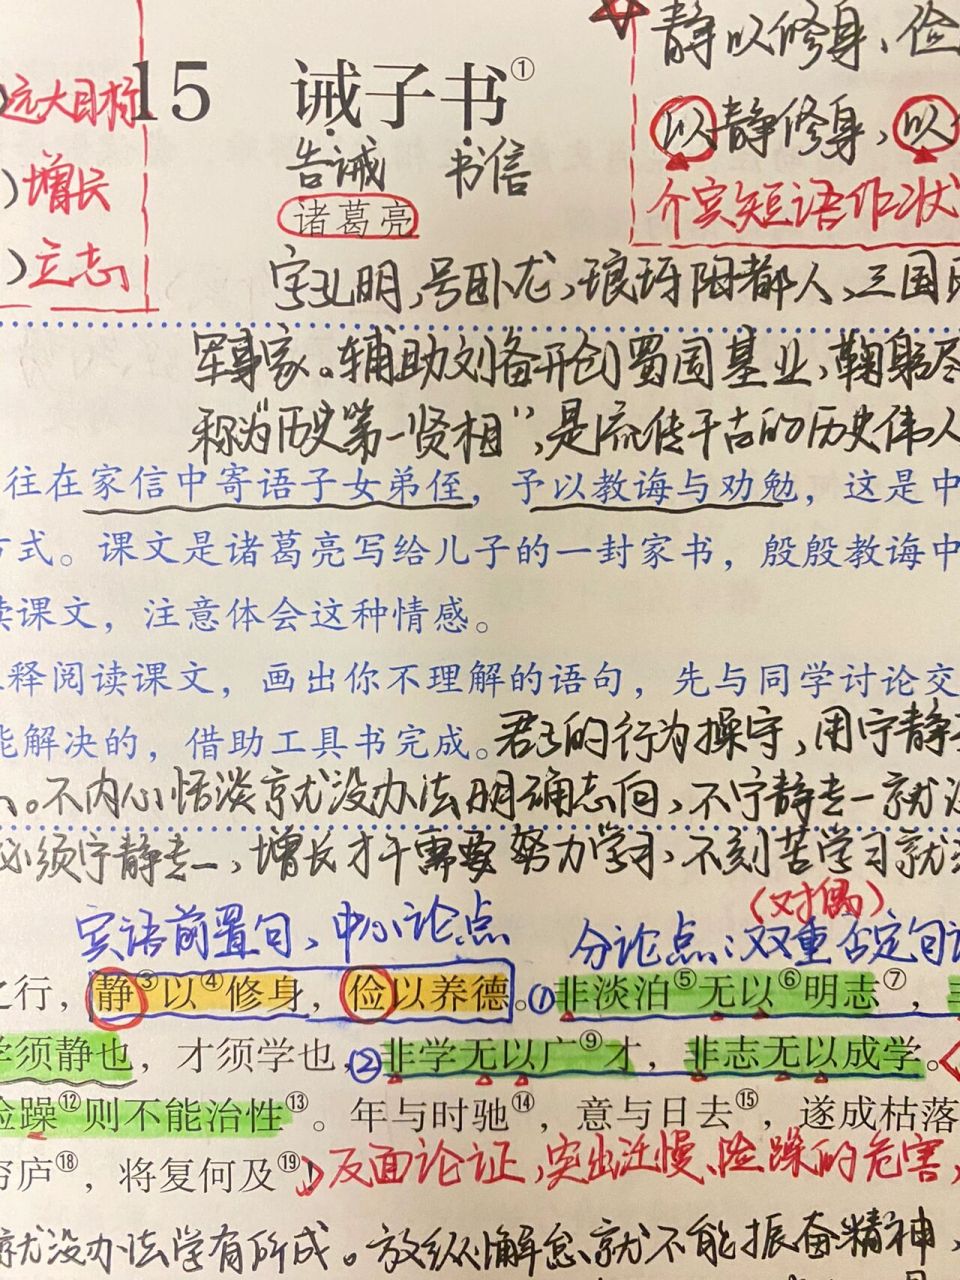 静以修身、俭
远大目标
15 诫子书①
以静修身，以
告诫 书信
)增长
介宾短语作状
诸葛亮
)立志
字孔明，号卧龙，琅玡阳都人、三国
军事家。辅助刘备开创蜀国基业，鞠躬尽
称为“历史第一贤相”，是流传千古的历史伟人
往在家信中寄语子女弟侄，予以教诲与劝勉，这是中
方式。课文是诸葛亮写给儿子的一封家书，殷殷教诲中
读课文，注意体会这种情感。
释阅读课文，画出你不理解的语句，先与同学讨论交
能解决的，借助工具书完成。
君子的行为操守，用宁静
。不内心恬淡就没办法明确志向，不宁静专一就没
必须宁静专一，增长才干需要努力学习，不刻苦学习就
(对偶)
宾语前置句、中心论点
分论点：双重否定句
之行，静③以④修身，俭以养德。①非淡泊⑤无以⑥明志⑦，
学须静也，才须学也，②非学无以广⑨才，非志无以成学。
险躁⑫则不能治性⑬。年与时驰⑭，意与日去⑮，遂成枯落
穷庐⑱，将复何及⑲！
反面论证，突出淫慢、险躁的危害，
就没办法学有所成。放纵懈怠就不能振奋精神，